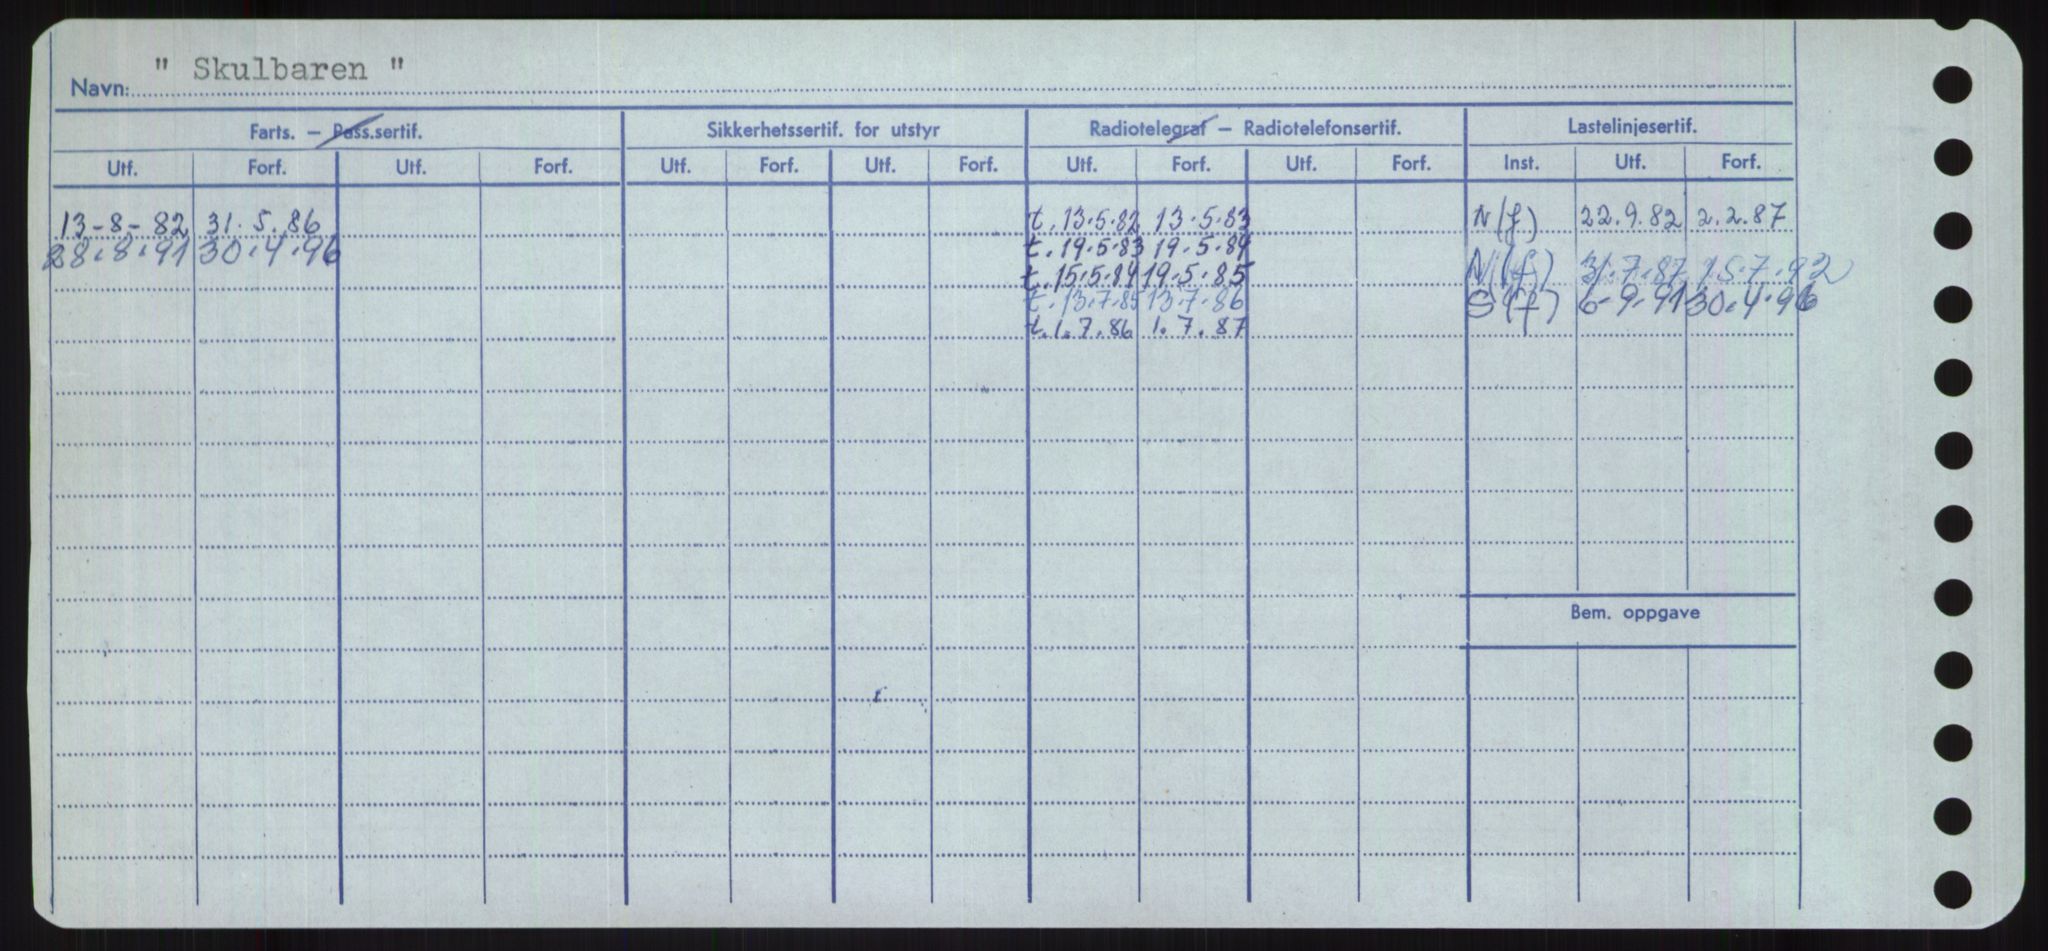 Navn: " Skulbaren "
Farts. — Pass.sertif. Sikkerhetssertif. for utstyr Radiotelegraf — Radiotelefonsertif. Lastelinjesertif.
Utf. Forf. Utf. Forf. Utf. Forf. Utf. Forf. Utf. Forf. Utf. Forf. Inst. Utf. Forf.
13-8-82 31.5.86 t.13.5.82 13.5.83 N(f) 22.9.82 2.2.87
28.8.91 30.4.96 t.19.5.83 19.5.84 N(f) 31.7.87 15.7.92
t.15.5.84 19.5.85 S(f) 6-9.91 30.4.96
t.13.7.85 13.7.86
t.1.7.86 1.7.87
Bem. oppgave